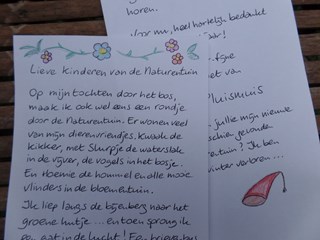 horen.
Voor nu, heel hartelijk bedankt
Lieve kinderen van de Naturentuin
Op mijn tochten door het bos,
maak ik ook wel eens een rondje
door de Naturentuin. Er wonen veel
van mijn dierenvriendjes. Kwaak de
kikker, met Slurpje de waterslak
in de vijver, de vogels in het bosje.
En Noemie de hommel en alle mooie
vlinders in de bloementuin.
Ik liep langs de bijenberg naar het
groene hutje.... en toen sprong ik
gat in de lucht! Een brievenbus
Pluishuis
jullie mijn nieuwe
gevonden
? Ik ben
winter verloren...